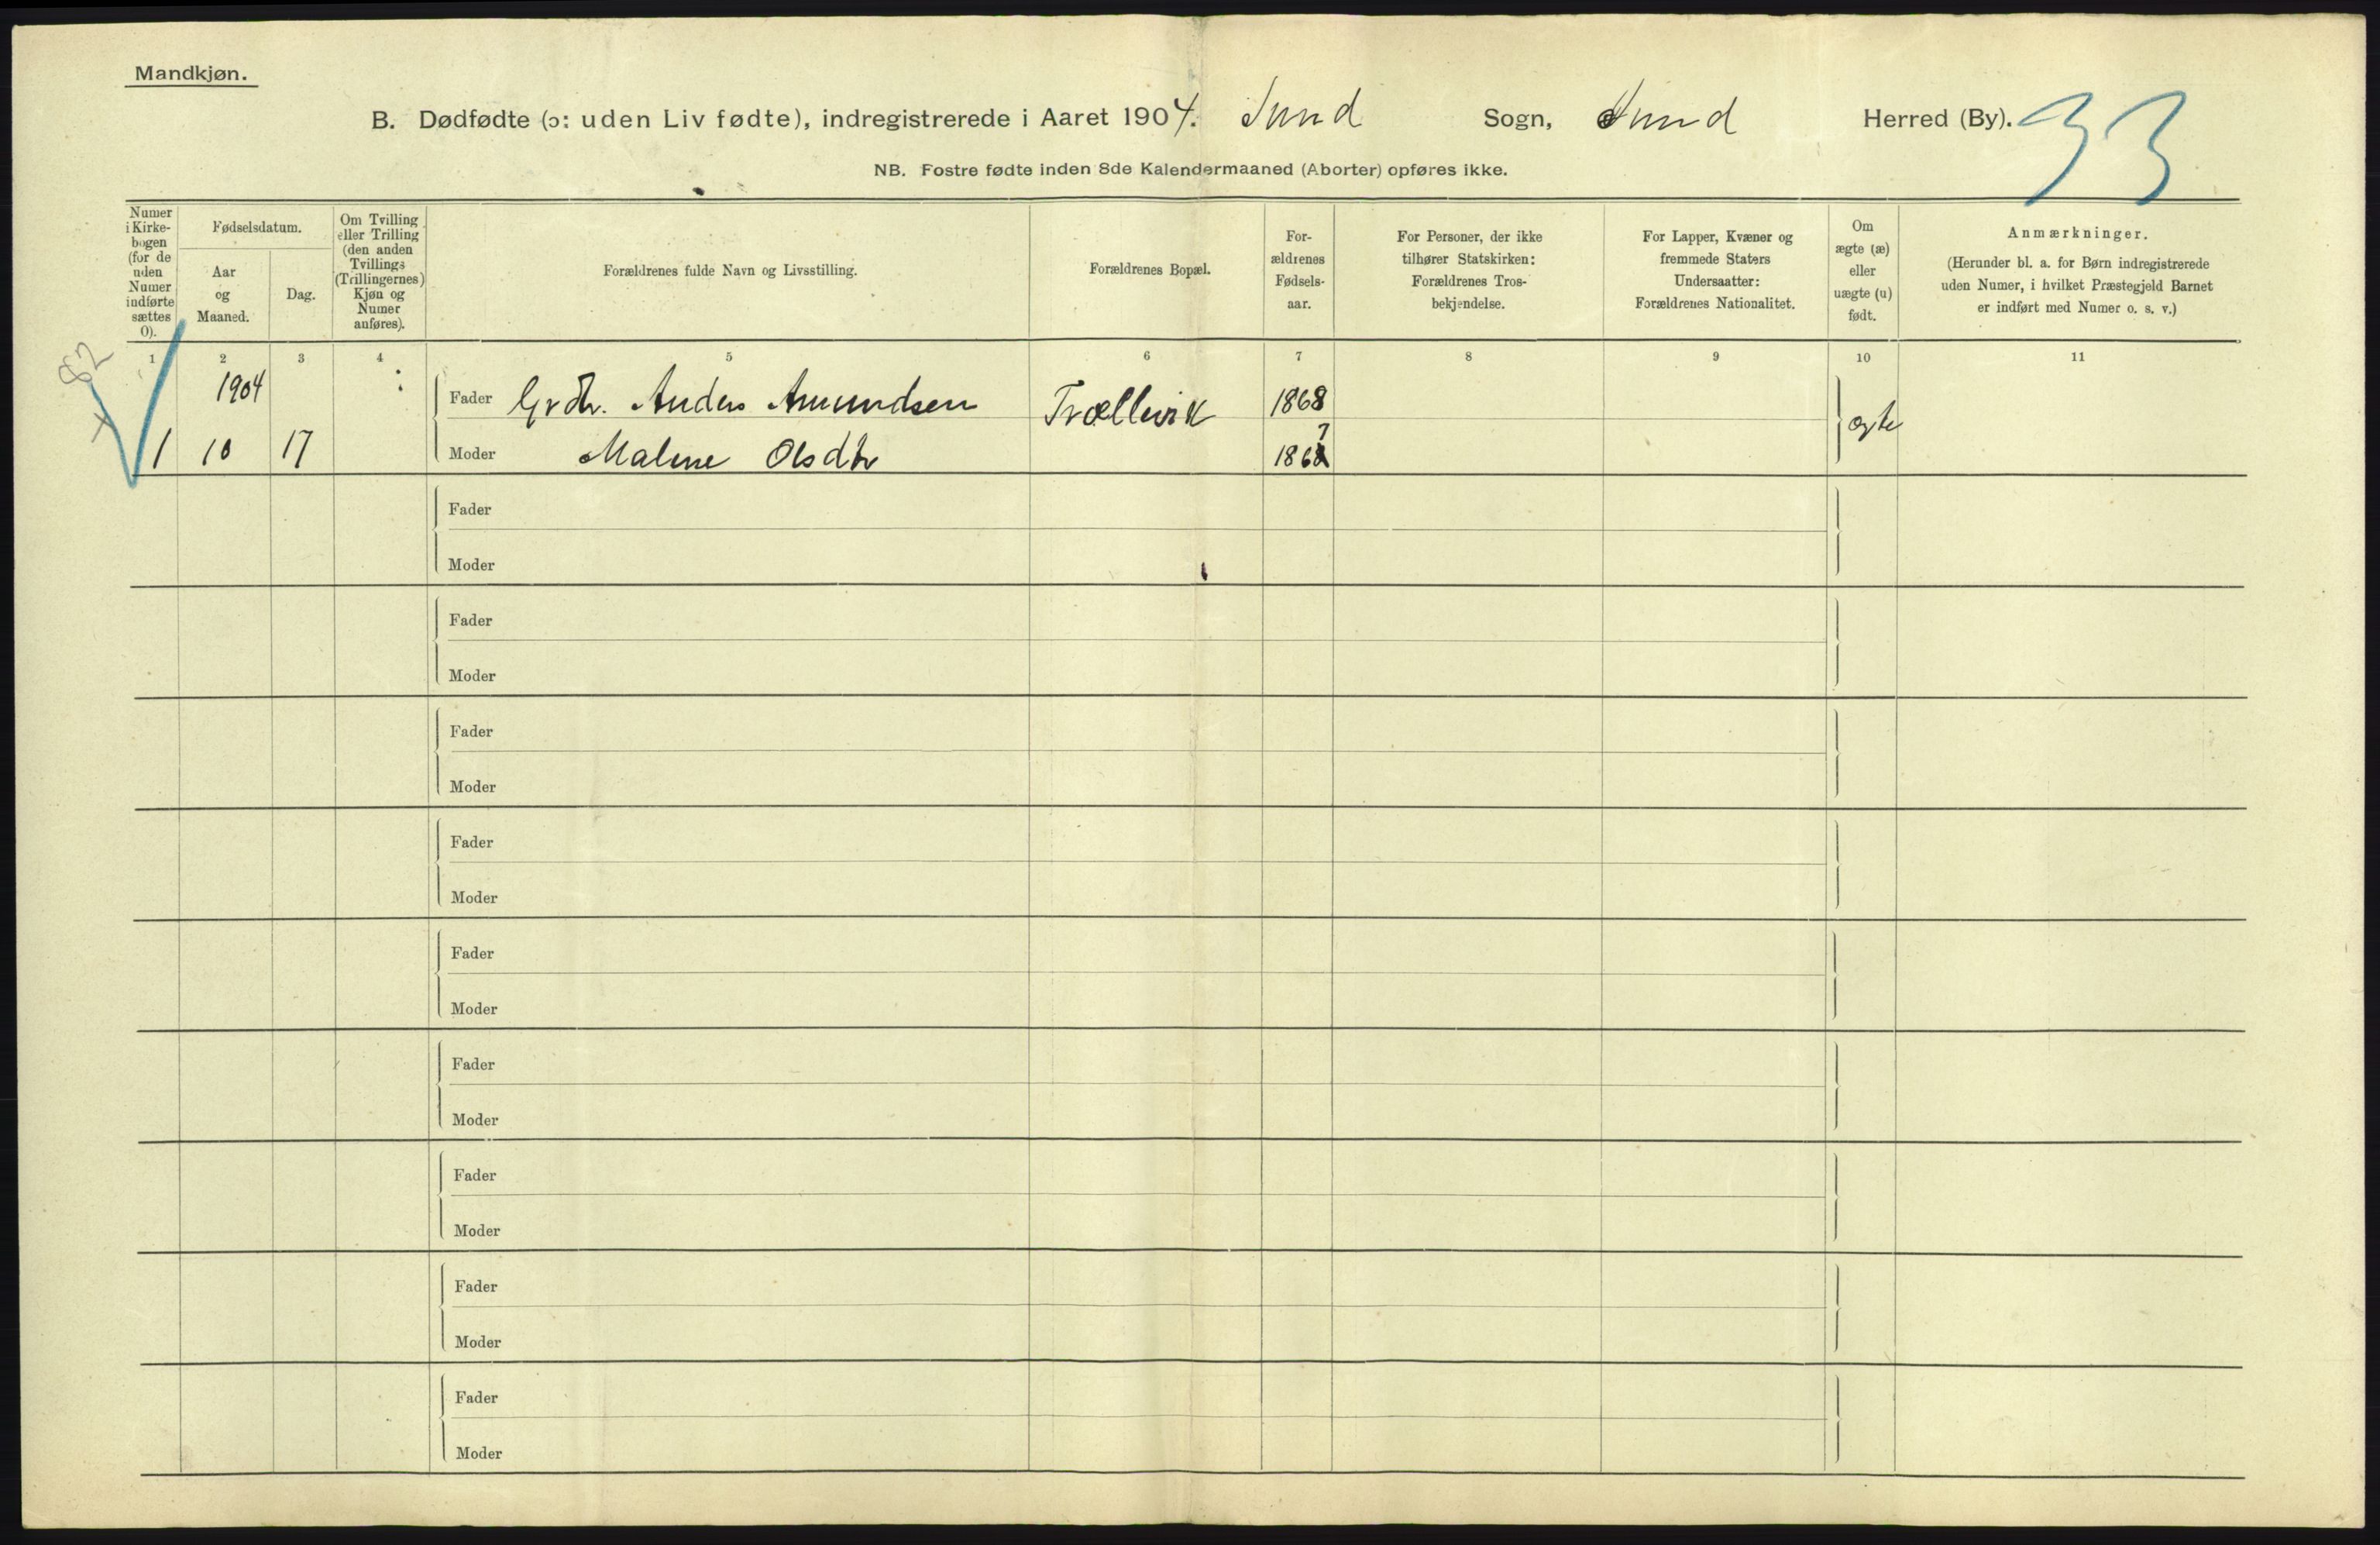 Mandkjøn.
B. Dødfødte (ɔ: uden Liv fødte), indregistrerede i Aaret 1904. Sund Sogn, Sund Herred (By). 33
NB. Fostre fødte inden 8de Kalendermaaned (Aborter) opføres ikke.
Numer
i Kirke-
bogen
(for de
uden
Numer
indførte
sættes
0).
Fødselsdatum.
Aar
og
Maaned.
Dag.
Om Tvilling
eller Trilling
(den anden
Tvillings
(Trillingernes)
Kjøn og
Numer
anføres).
Forældrenes fulde Navn og Livsstilling.
Forældrenes Bopæl.
For-
ældrenes
Fødsels-
aar.
For Personer, der ikke
tilhører Statskirken:
Forældrenes Tros-
bekjendelse.
For Lapper, Kvæner og
fremmede Staters
Undersaatter:
Forældrenes Nationalitet.
Om
ægte (æ)
eller
uægte (u)
født.
Anmærkninger.
(Herunder bl. a. for Børn indregistrerede
uden Numer, i hvilket Præstegjeld Barnet
er indført med Numer o. s. v.)
1 2 3 4 5 6 7 8 9 10 11
82
1904 Fader Grdbr. Anders Amundsen Trællevik 1868 ægte
7
1 10 17 Moder Malene Olsdtr 1868
Fader
Moder
Fader
Moder
Fader
Moder
Fader
Moder
Fader
Moder
Fader
Moder
Fader
Moder
Fader
Moder
Fader
Moder